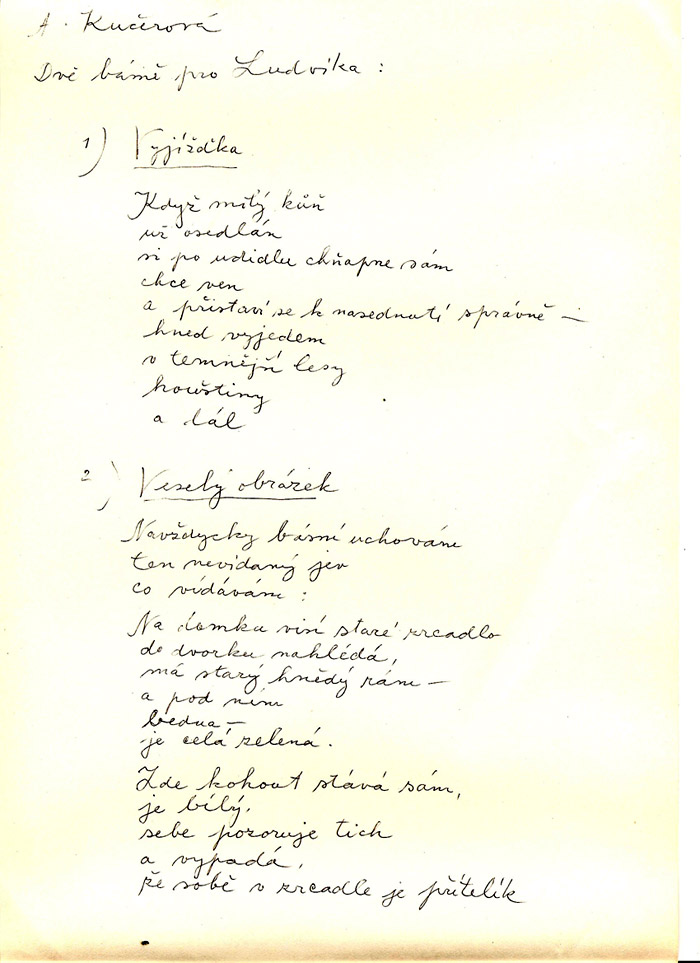 A. Kučerová
Dvě básně pro Ludvíka :
1) Vyjížďka
Když milý kůň
už osedlán
si po udidlu chňapne sám
chce ven
a přistaví se k nasednutí správně —
hned vyjedem
v temnější lesy
houštiny
a dál
2) Veselý obrázek
Navždycky básní uchovám
ten nevídaný jev
co vídávám :
Na domku visí staré zrcadlo
do dvorku nahlédá,
má starý hnědý rám —
a pod ním
bedna —
je celá zelená.
Zde kohout stává sám,
je bílý,
sebe pozoruje tich
a vypadá,
že sobě v zrcadle je přítelík